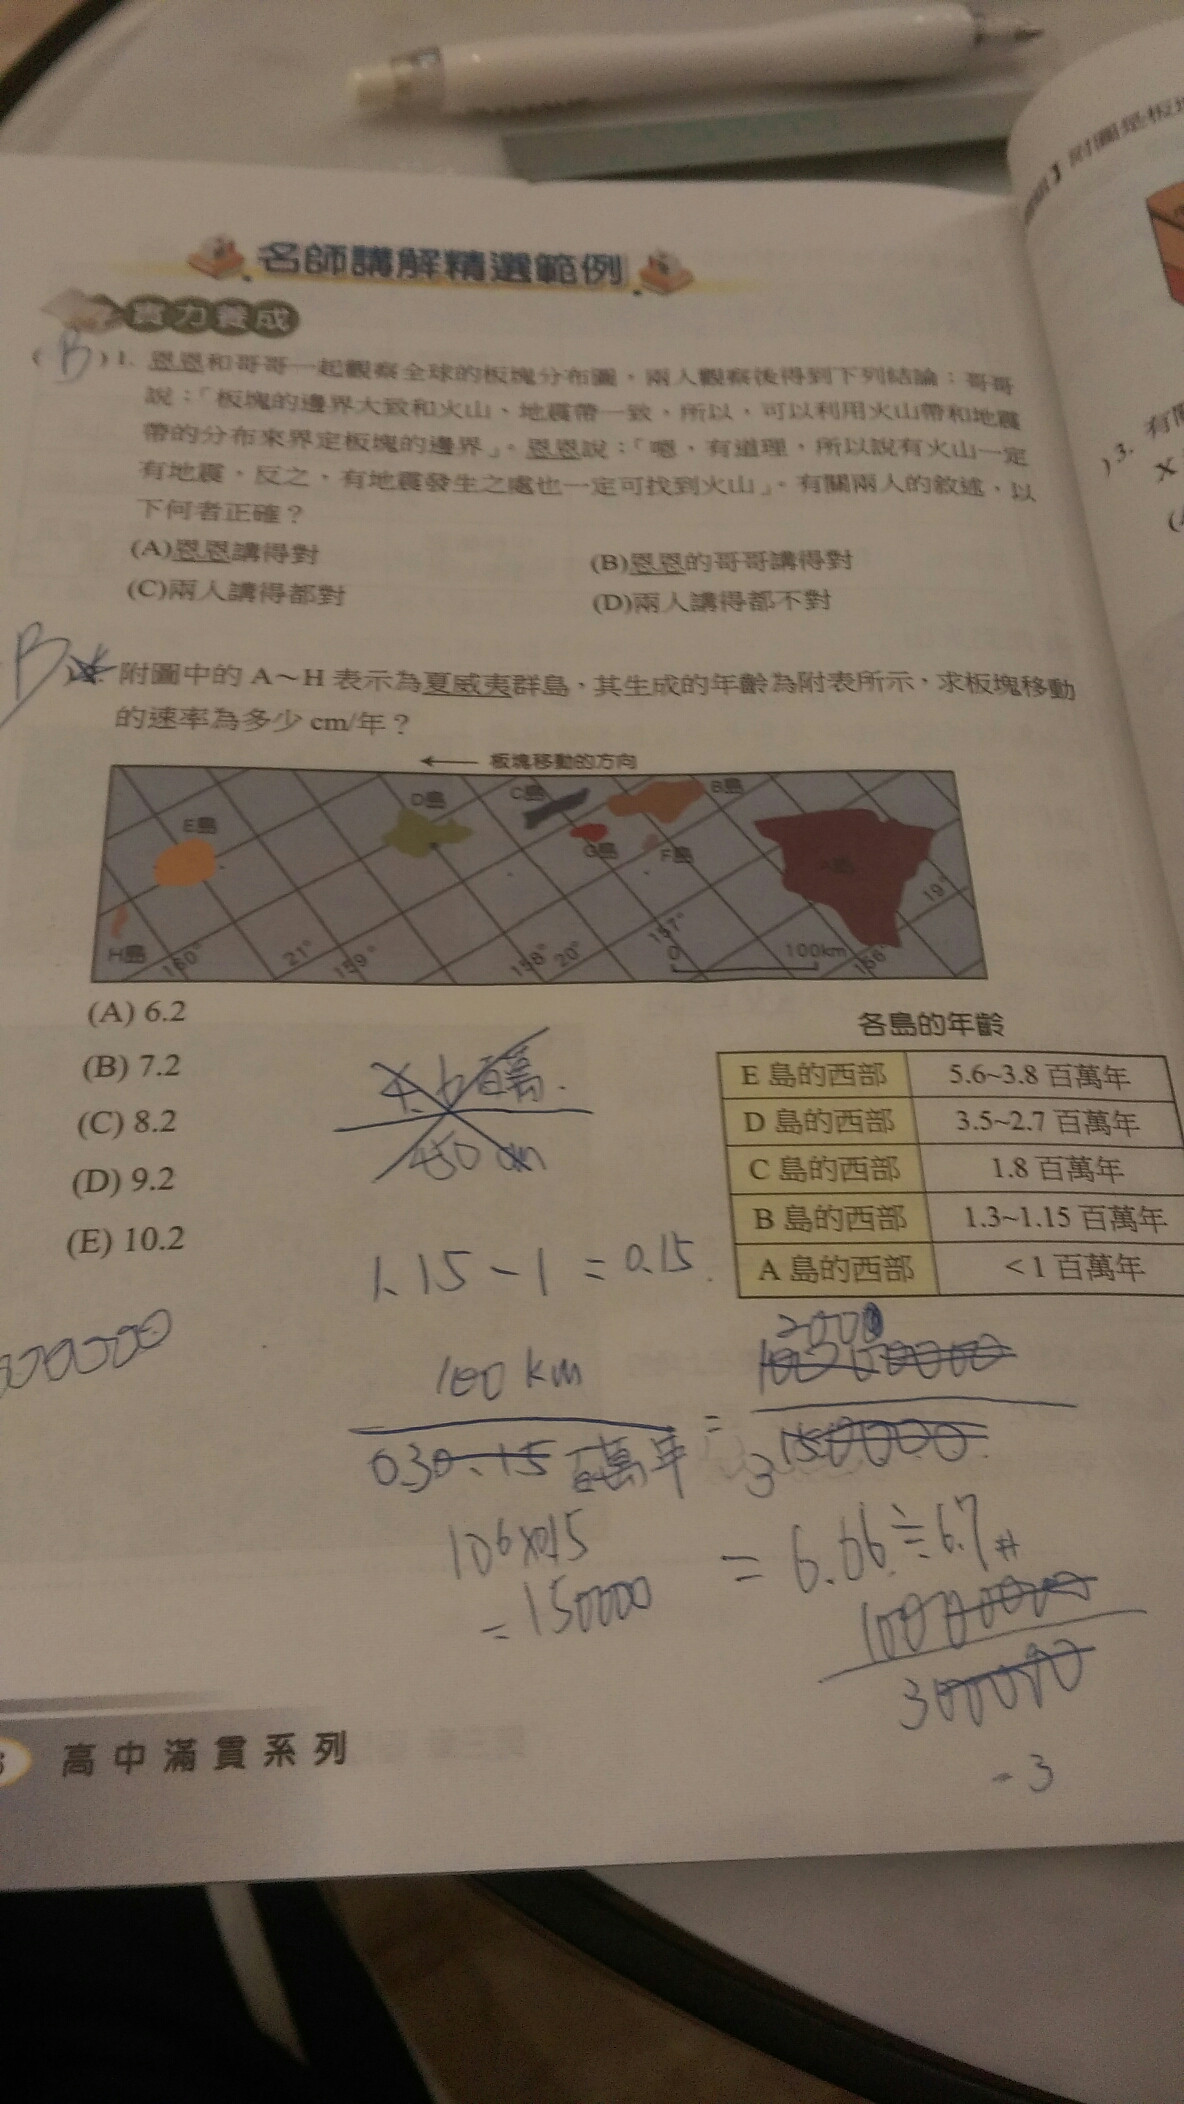 附圖是板
名師講解精選範例
實力養成
( B ) 1. 恩恩和哥哥一起觀察全球的板塊分布圖，兩人觀察後得到下列結論：哥哥
說：「板塊的邊界大致和火山、地震帶一致，所以，可以利用火山帶和地震
帶的分布來界定板塊的邊界」。恩恩說：「嗯，有道理，所以說有火山一定
有地震，反之，有地震發生之處也一定可找到火山」。有關兩人的敘述，以
下何者正確？
(A)恩恩講得對
(B)恩恩的哥哥講得對
(C)兩人講得都對
(D)兩人講得都不對
) 3.
B
附圖中的 A～H 表示為夏威夷群島，其生成的年齡為附表所示，求板塊移動
的速率為多少 cm/年？
← 板塊移動的方向
E島
D島
C島
B島
G島
F島
A島
H島
160°
21°
159°
158°
20°
157°
156°
19°
0
100km
(A) 6.2
(B) 7.2
(C) 8.2
(D) 9.2
(E) 10.2
各島的年齡
E 島的西部 5.6~3.8 百萬年
D 島的西部 3.5~2.7 百萬年
C 島的西部 1.8 百萬年
B 島的西部 1.3~1.15 百萬年
A 島的西部 <1 百萬年
1.15 - 1 = 0.15
100 km
百萬年
=
2000
3
150000
10⁶×0.15
= 150000
= 6.66 ≒ 6.7 #
- 3
高中滿貫系列